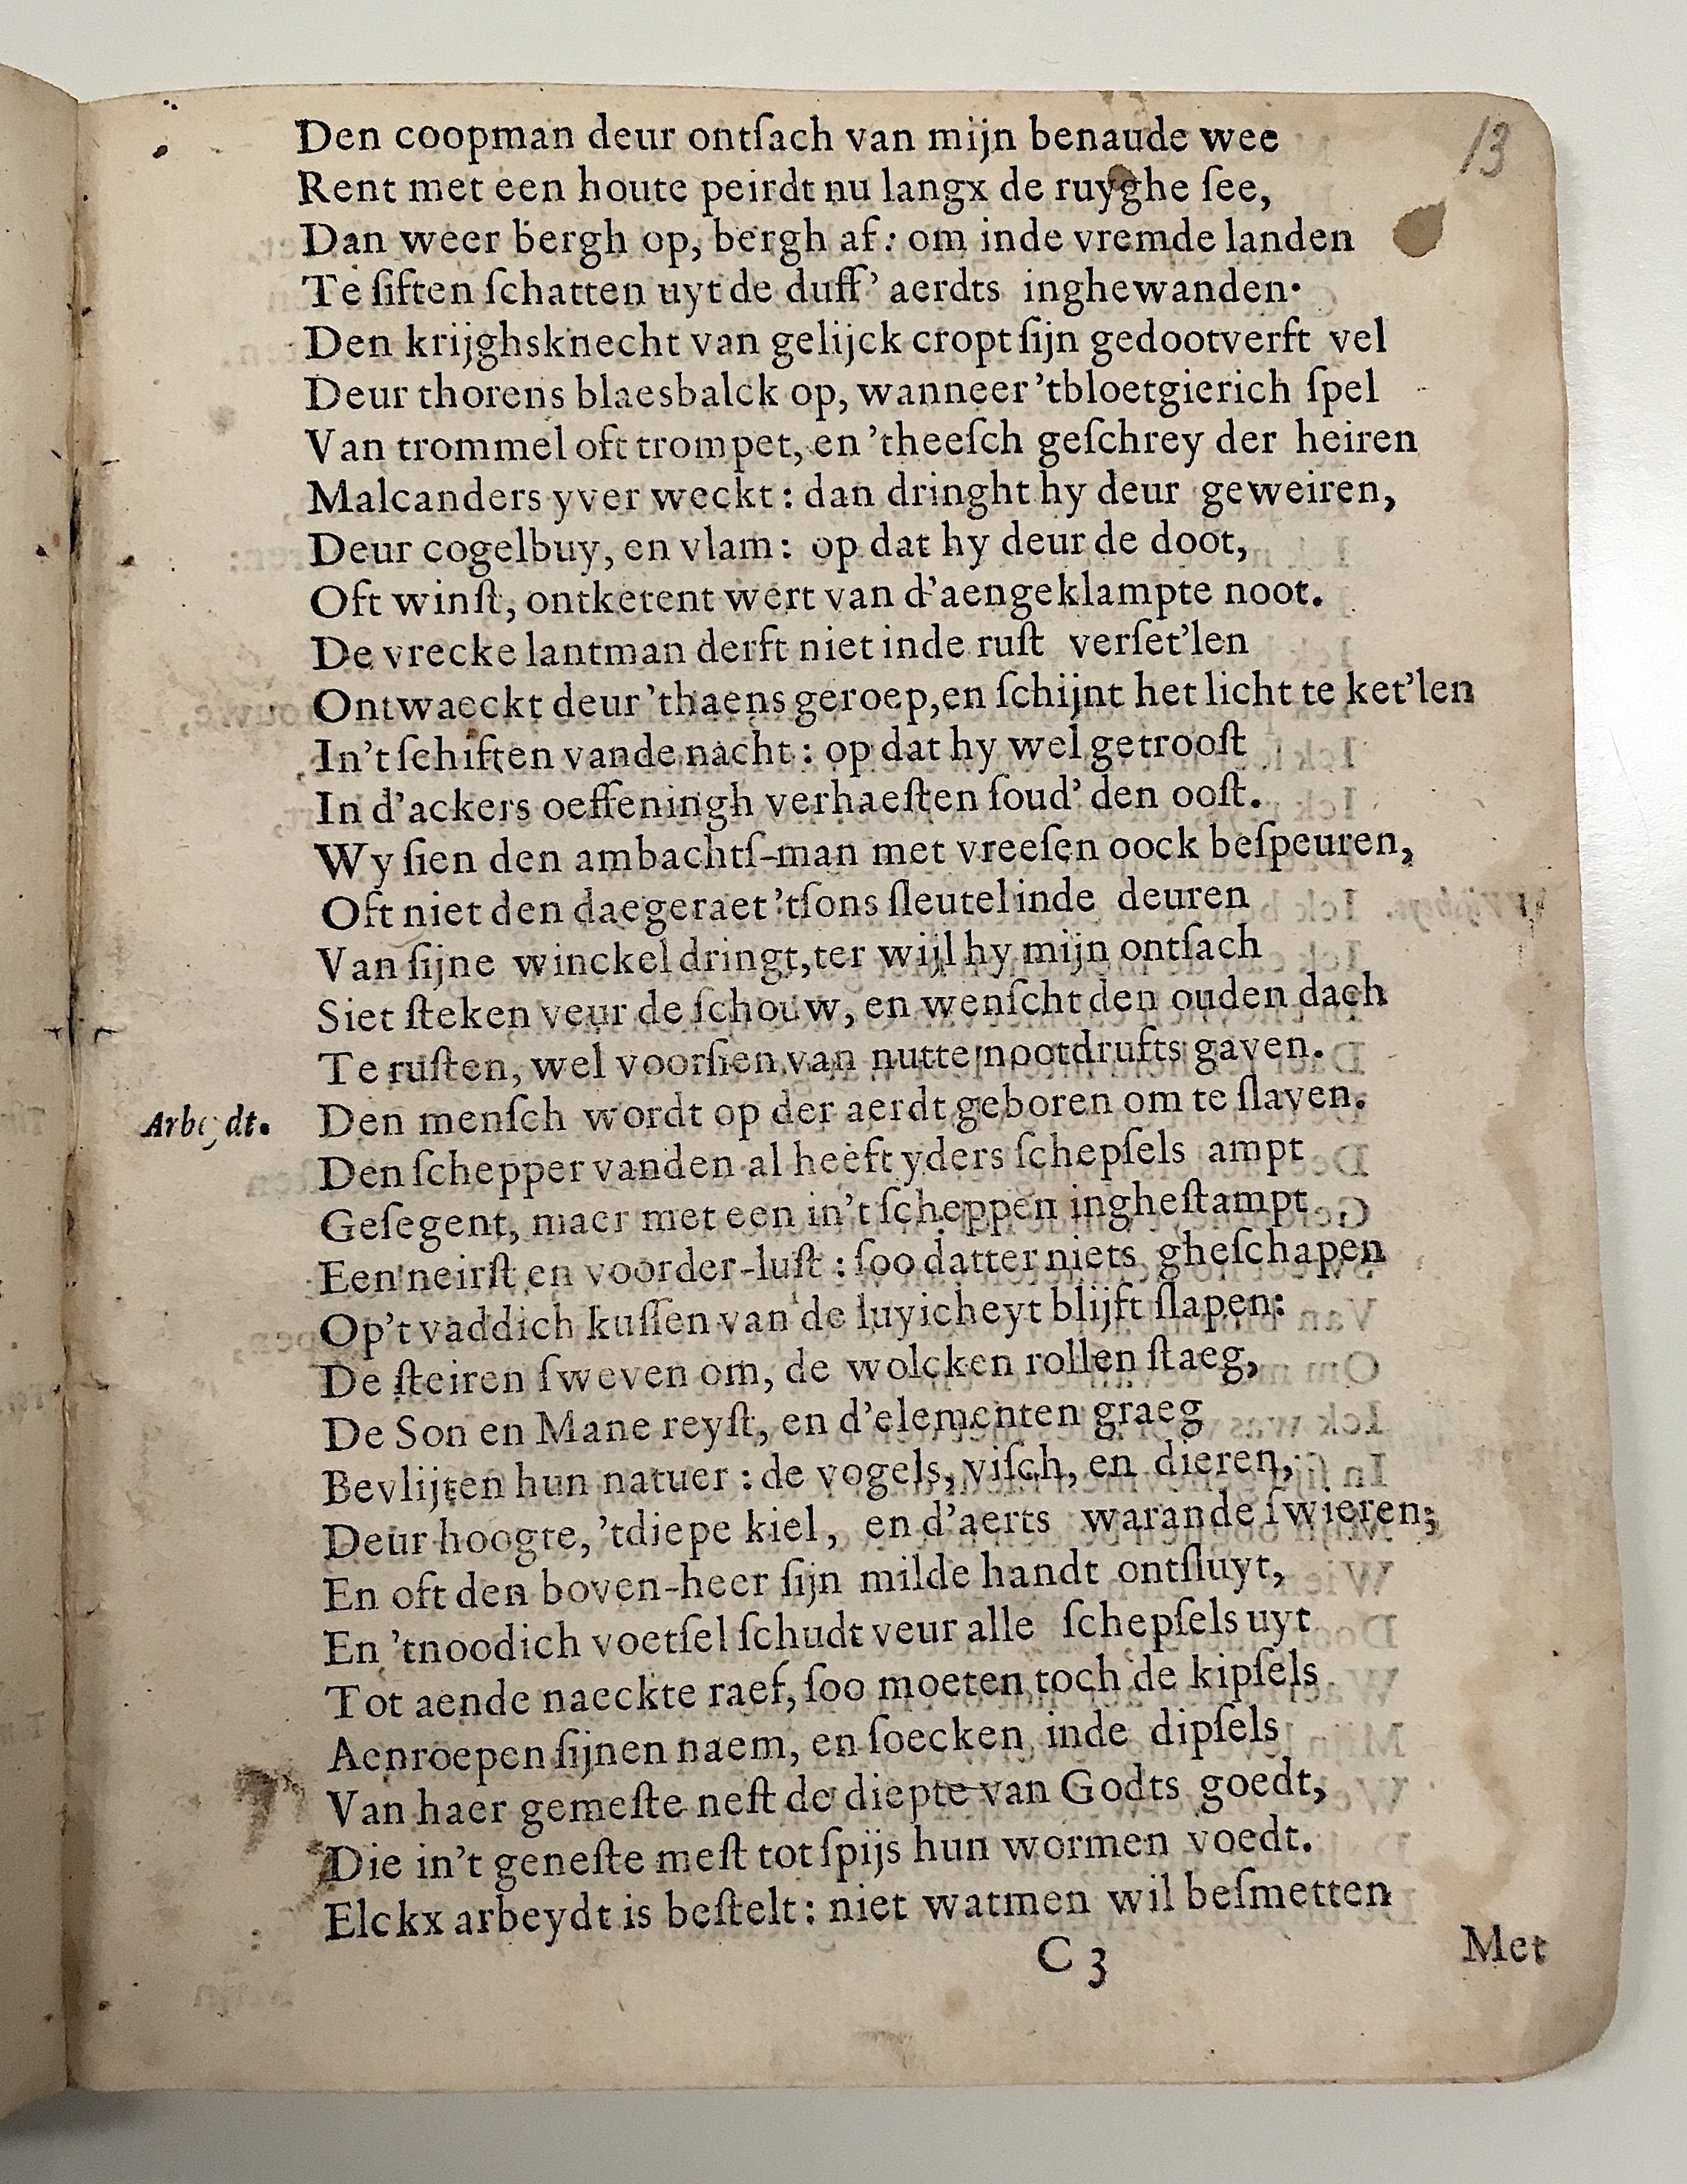 13
Den coopman deur ontſach van mijn benaude wee
Rent met een houte peirdt nu langx de ruyghe ſee,
Dan weer bergh op, bergh af: om inde vremde landen
Te ſiften ſchatten uyt de duff' aerdts inghewanden.
Den krijghsknecht van gelijck cropt ſijn gedootverft vel
Deur thorens blaesbalck op, wanneer 'tbloetgierich ſpel
Van trommel oft trompet, en 'theeſch geſchrey der heiren
Malcanders yver weckt: dan dringht hy deur geweiren,
Deur cogelbuy, en vlam: op dat hy deur de doot,
Oft winſt, ontketent wert van d'aengeklampte noot.
De vrecke lantman derft niet inde ruſt verſet'len
Ontwaeckt deur 'thaens geroep, en ſchijnt het licht te ket'len
In't ſchiften vande nacht: op dat hy wel getrooſt
In d'ackers oeffeningh verhaeſten ſoud' den ooſt.
Wy ſien den ambachtſ-man met vreeſen oock beſpeuren,
Oft niet den daegeraet 'tſons ſleutel inde deuren
Van ſijne winckel dringt, ter wijl hy mijn ontſach
Siet ſteken veur de ſchouw, en wenſcht den ouden dach
Te ruſten, wel voorſien van nutte nootdrufts gaven.
Arbeydt. Den menſch wordt op der aerdt geboren om te ſlaven.
Den ſchepper vanden al heeft yders ſchepſels ampt
Geſegent, maer met een in't ſcheppen ingheſtampt
Een neirſt en voorder-luſt: ſoo datter niets gheſchapen
Op't vaddich kuſſen van de luyicheyt blijft ſlapen:
De ſteiren ſweven om, de wolcken rollen ſtaeg,
De Son en Mane reyſt, en d'elementen graeg
Bevlijten hun natuer: de vogels, viſch, en dieren,
Deur hoogte, 'tdiepe kiel, en d'aerts warande ſwieren;
En oft den boven-heer ſijn milde handt ontſluyt,
En 'tnoodich voetſel ſchudt veur alle ſchepſels uyt
Tot aende naeckte raef, ſoo moeten toch de kipſels
Aenroepen ſijnen naem, en ſoecken inde dipſels
Van haer gemeſte neſt de diepte van Godts goedt,
Die in't geneſte meſt tot ſpijs hun wormen voedt.
Elckx arbeydt is beſtelt: niet watmen wil beſmetten
C 3
Met